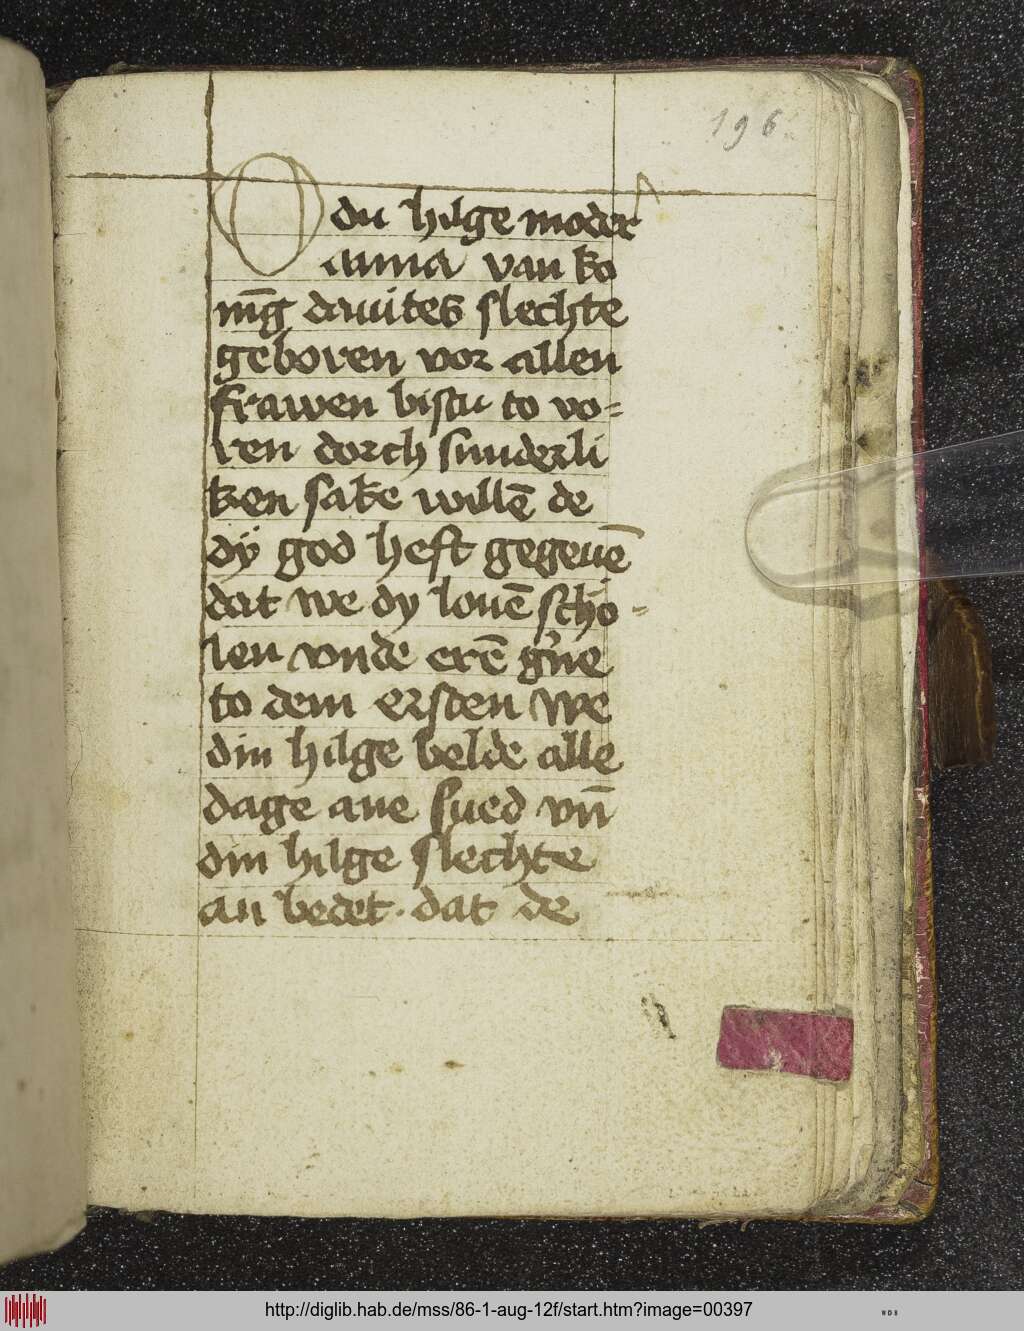 196
O du hilge moder
anna van ko
nīg dauites slechte
geboren vor allen
frawen bistu to vo-
ren dorch sunderli
ken sake willē de
dÿ god heft gegeuē
dat we dy louē scho-
len vnde erē gͥne
to dem ersten we
din hilge belde alle
dage ane sued vn̄
din hilge slechte
an bedet. dat de
http://diglib.hab.de/mss/86-1-aug-12f/start.htm?image=00397